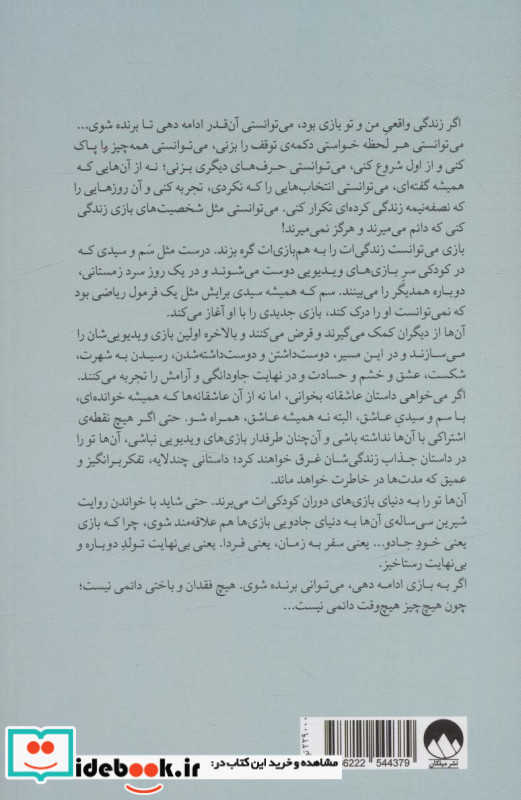 اگر زندگی واقعیِ من و تو بازی بود، می‌توانستی آن‌قدر ادامه دهی تا برنده شوی...
می‌توانستی هر لحظه خواستی دکمه‌ی توقف را بزنی، می‌توانستی همه‌چیز را پاک
کنی و از اول شروع کنی، می‌توانستی حرف‌های دیگری بزنی؛ نه از آن‌هایی که
همیشه گفته‌ای، می‌توانستی انتخاب‌هایی را که نکردی، تجربه کنی و آن روزهایی را
که نصفه‌نیمه زندگی کرده‌ای تکرار کنی. می‌توانستی مثل شخصیت‌های بازی زندگی
کنی که دائم می‌میرند و هرگز نمی‌میرند!
بازی می‌توانست زندگی‌ات را به هم‌بازی‌ات گره بزند. درست مثل سَم و سیدی که
در کودکی سرِ بازی‌های ویدیویی دوست می‌شوند و در یک روز سرد زمستانی،
دوباره همدیگر را می‌بینند. سم که همیشه سیدی برایش مثل یک فرمول ریاضی بود
که نمی‌توانست او را درک کند، بازی جدیدی را با او آغاز می‌کند.
آن‌ها از دیگران کمک می‌گیرند و قرض می‌کنند و بالاخره اولین بازی ویدیویی‌شان را
می‌سازند و در این مسیر، دوست‌داشتن و دوست‌داشته‌شدن، رسیدن به شهرت،
شکست، عشق و خشم و حسادت و در نهایت جاودانگی و آرامش را تجربه می‌کنند.
اگر می‌خواهی داستان عاشقانه بخوانی، اما نه از آن عاشقانه‌ها که همیشه خوانده‌ای،
با سم و سیدیِ عاشق، البته نه همیشه عاشق، همراه شو. حتی اگر هیچ نقطه‌ی
اشتراکی با آن‌ها نداشته باشی و آن‌چنان طرفدار بازی‌های ویدیویی نباشی، آن‌ها تو را
در داستان جذاب زندگی‌شان غرق خواهند کرد؛ داستانی چندلایه، تفکربرانگیز و
عمیق که مدت‌ها در خاطرت خواهد ماند.
آن‌ها تو را به دنیای بازی‌های دوران کودکی‌ات می‌برند. حتی شاید با خواندن روایت
شیرین سی‌ساله‌ی آن‌ها به دنیای جادویی بازی‌ها هم علاقه‌مند شوی، چرا که بازی
یعنی خودِ جادو... یعنی سفر به زمان، یعنی فردا. یعنی بی‌نهایت تولدِ دوباره و
بی‌نهایت رستاخیز.
اگر به بازی ادامه دهی، می‌توانی برنده شوی. هیچ فقدان و باختی دائمی نیست؛
چون هیچ‌چیز هیچ‌وقت دائمی نیست...
۲۲۹۰۰۰ تو
6222 544379
نشر میلکان
مشاهده و خرید این کتاب در:
idebook.ir